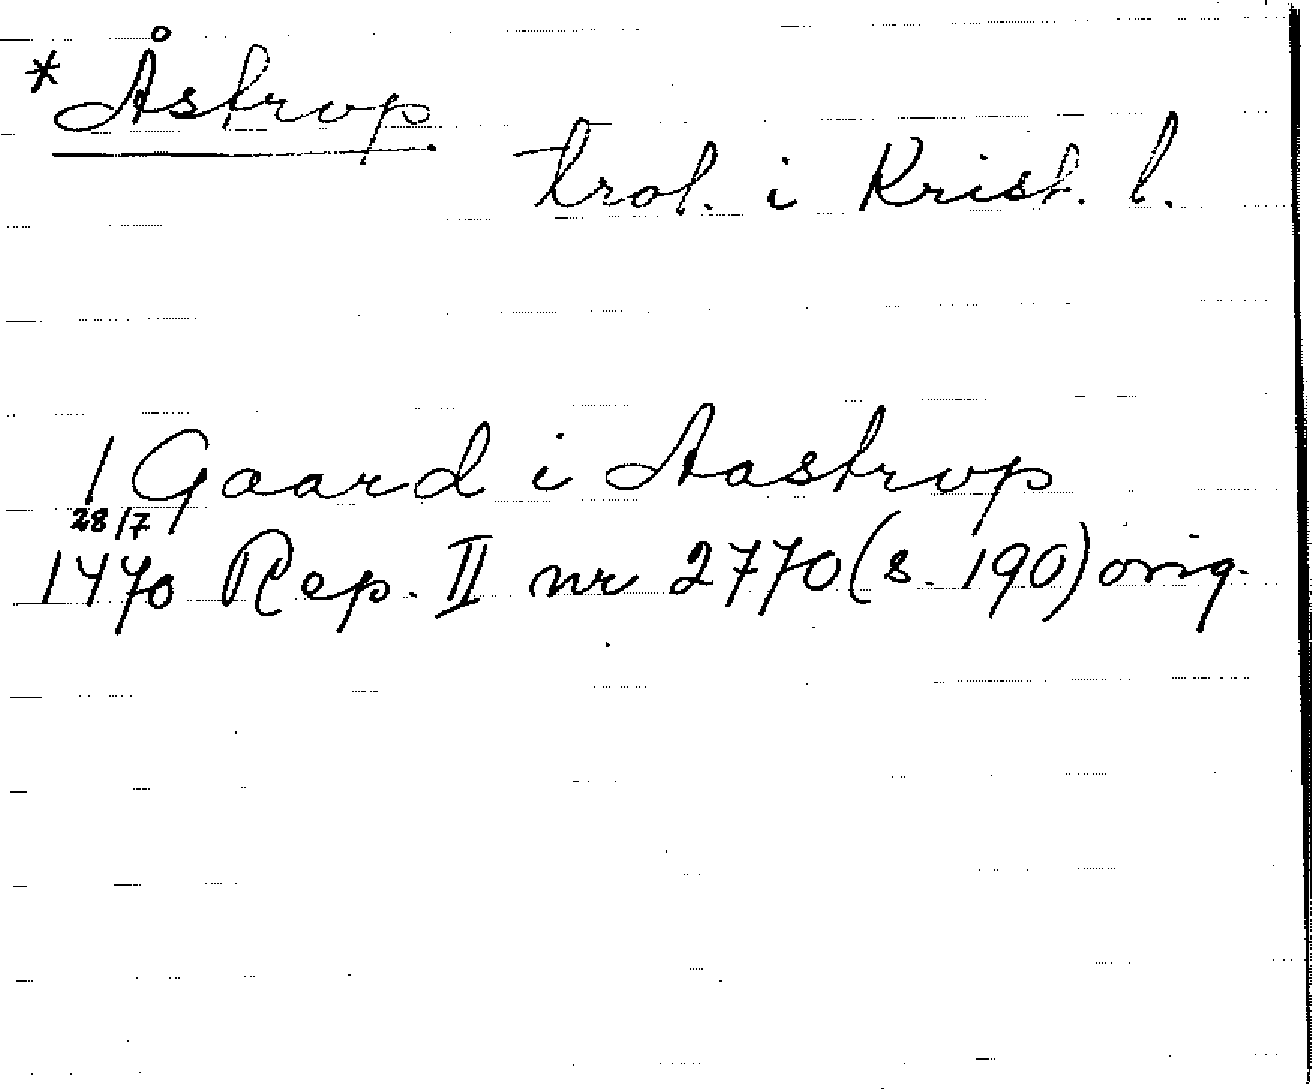 * Åstrup.
trol. i Krist. l.
1 Gaard i Aastrup
28/7
1470 Rep. II nr 2770 (s. 190) orig.